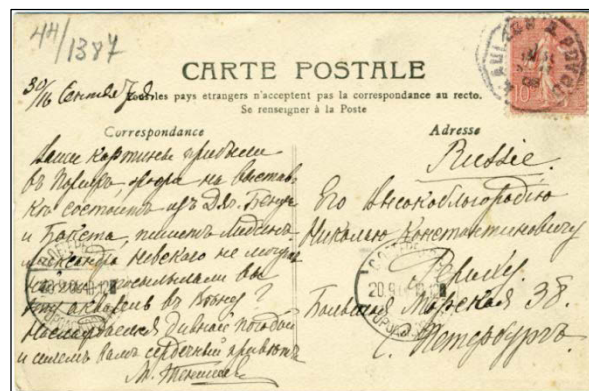 44/1387
CARTE POSTALE
30/16 Сентября
Tous les pays etrangers n'acceptent pas la correspondance au recto.
Se renseigner à la Poste
Correspondance
Adresse
Ваши картины прибыли
въ Парижъ, жюри на выстав
къ состоитъ изъ Дяг. Бенуа
и Бакста, пишетъ
Александра Невскаго не могли
посылали вы
эту акварель въ Вѣну?
дивной погодой
и шлемъ вамъ сердечный привѣтъ
М. Тенишева
Russie.
Его Высокоблагородію
Николаю Константиновичу
Рериху.
Большая Морская 38.
С. Петербургъ